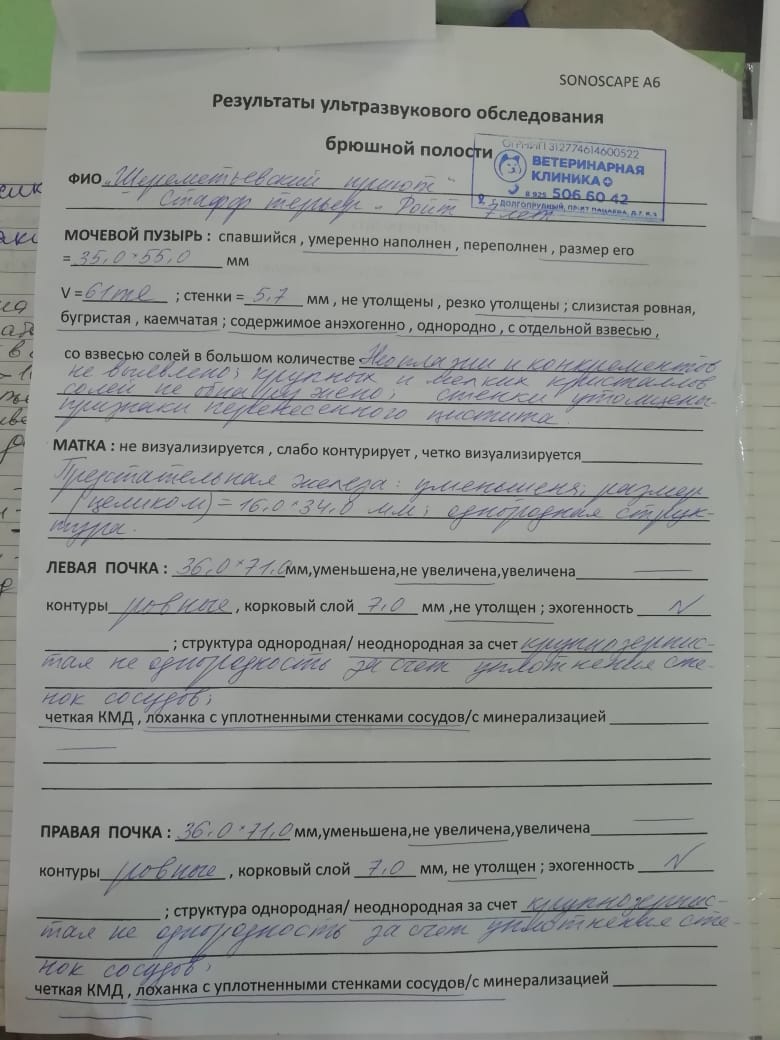 SONOSCAPE A6
Результаты ультразвукового обследования
брюшной полости
ОГРНИП 312774614600522
ВЕТЕРИНАРНАЯ
КЛИНИКА
8 925 506 60 42
Г. ДОЛГОПРУДНЫЙ, ПР-КТ ПАЦАЕВА, Д.7, К.
ФИО „Шереметьевский приют"
Стафф терьер - Фойт 7 лет
МОЧЕВОЙ ПУЗЫРЬ : спавшийся , умеренно наполнен , переполнен , размер его
= 35,0 × 55,0 мм
V = 61 ml ; стенки = 5,7 мм , не утолщены , резко утолщены ; слизистая ровная,
бугристая , каемчатая ; содержимое анэхогенно , однородно , с отдельной взвесью ,
со взвесью солей в большом количестве Неоплазии и конкрементов
не выявлено; крупных и мелких кристаллов
солей не обнаружено; стенки утолщены-
признаки перенесенного цистита.
МАТКА : не визуализируется , слабо контурирует , четко визуализируется
Предстательная железа: уменьшена; размер
(целиком) = 16,0 × 34,0 мм; однородная струк-
тура.
ЛЕВАЯ ПОЧКА : 36,0 × 71,0 мм,уменьшена,не увеличена,увеличена
контуры ровные , корковый слой 7,0 мм ,не утолщен ; эхогенность N
; структура однородная/ неоднородная за счет крупнозернис-
тая не однородность за счет уплотнения сте-
нок сосудов;
четкая КМД , лоханка с уплотненными стенками сосудов/с минерализацией
ПРАВАЯ ПОЧКА : 36,0 × 71,0 мм,уменьшена,не увеличена,увеличена
контуры ровные , корковый слой 7,0 мм, не утолщен ; эхогенность N
; структура однородная/ неоднородная за счет крупнозернис-
тая не однородность за счет уплотнения сте-
нок сосудов;
четкая КМД , лоханка с уплотненными стенками сосудов/с минерализацией